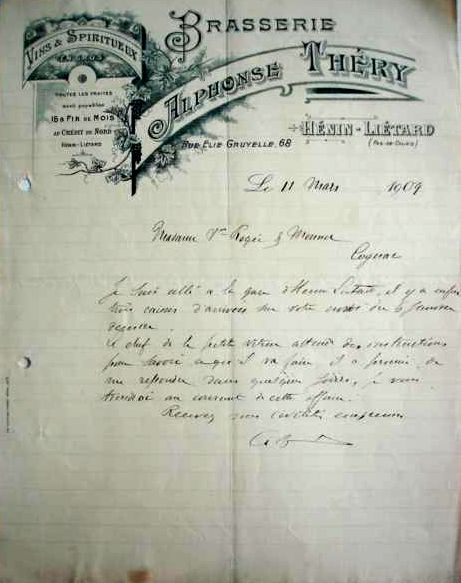 Brasserie
Alphonse Théry
Vins & Spiritueux
En Gros
Toutes les traites
sont payables
15 & Fin de Mois
au Crédit du Nord
Hénin-Liétard
Hénin-Liétard
(Pas-de-Calais)
Rue Elie Gruyelle, 68
Le 11 Mars 1909
Madame Vve Rogée &
Cognac
Je suis allé à la gare d'Henin Lietard, il y a enfin
trois caisses d'arrivées sur votre envoi du 6 Janvier
dernier
Le chef de la petite vitesse attend des instructions
pour savoir ce qu'il va faire, il a promis de
me repondre dans quelques jours, je vous
tiendrai au courant de cette affaire.
Recevez mes